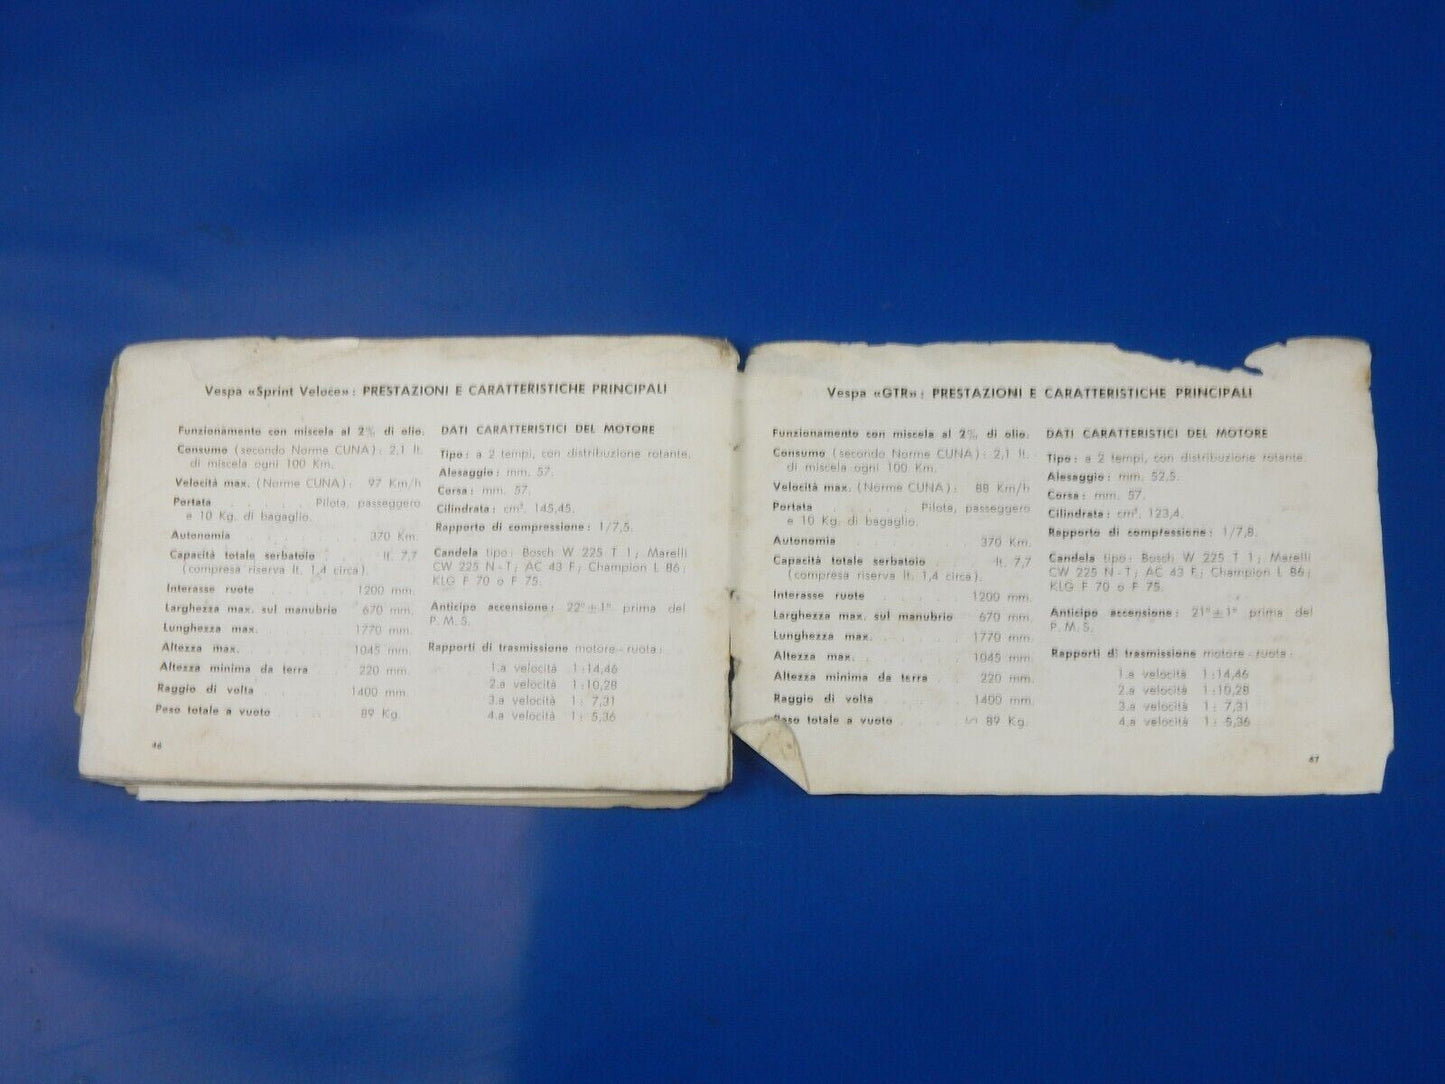 Vespa «Sprint Veloce»: PRESTAZIONI E CARATTERISTICHE PRINCIPALI
Funzionamento con miscela al 2% di olio.
Consumo (secondo Norme CUNA): 2,1 lt.
di miscela ogni 100 Km.
Velocità max. (Norme CUNA): 97 Km/h
Portata . . . . . Pilota, passeggero
e 10 Kg. di bagaglio.
Autonomia . . . . . . 370 Km.
Capacità totale serbatoio . . . lt. 7,7
(compresa riserva lt. 1,4 circa).
Interasse ruote . . . . . 1200 mm.
Larghezza max. sul manubrio . 670 mm.
Lunghezza max. . . . . . 1770 mm.
Altezza max. . . . . . 1045 mm.
Altezza minima da terra . . . 220 mm.
Raggio di volta . . . . . 1400 mm.
Peso totale a vuoto . . . . 89 Kg.
DATI CARATTERISTICI DEL MOTORE
Tipo: a 2 tempi, con distribuzione rotante.
Alesaggio: mm. 57.
Corsa: mm. 57.
Cilindrata: cm³. 145,45.
Rapporto di compressione: 1/7,5.
Candela tipo: Bosch W 225 T 1; Marelli
CW 225 N-T; AC 43 F; Champion L 86;
KLG F 70 o F 75.
Anticipo accensione: 22°±1° prima del
P.M.S.
Rapporti di trasmissione motore-ruota:
1.a velocità 1:14,46
2.a velocità 1:10,28
3.a velocità 1: 7,31
4.a velocità 1: 5,36
46
Vespa «GTR»: PRESTAZIONI E CARATTERISTICHE PRINCIPALI
Funzionamento con miscela al 2% di olio.
Consumo (secondo Norme CUNA): 2,1 lt.
di miscela ogni 100 Km.
Velocità max. (Norme CUNA): 88 Km/h
Portata . . . . . Pilota, passeggero
e 10 Kg. di bagaglio.
Autonomia . . . . . . 370 Km.
Capacità totale serbatoio . . . lt. 7,7
(compresa riserva lt. 1,4 circa).
Interasse ruote . . . . . 1200 mm.
Larghezza max. sul manubrio . 670 mm.
Lunghezza max. . . . . . 1770 mm.
Altezza max. . . . . . 1045 mm.
Altezza minima da terra . . . 220 mm.
Raggio di volta . . . . . 1400 mm.
Peso totale a vuoto . . . . 89 Kg.
DATI CARATTERISTICI DEL MOTORE
Tipo: a 2 tempi, con distribuzione rotante.
Alesaggio: mm. 52,5.
Corsa: mm. 57.
Cilindrata: cm³. 123,4.
Rapporto di compressione: 1/7,8.
Candela tipo: Bosch W 225 T 1; Marelli
CW 225 N-T; AC 43 F; Champion L 86;
KLG F 70 o F 75.
Anticipo accensione: 21°±1° prima del
P.M.S.
Rapporti di trasmissione motore-ruota:
1.a velocità 1:14,46
2.a velocità 1:10,28
3.a velocità 1: 7,31
4.a velocità 1: 5,36